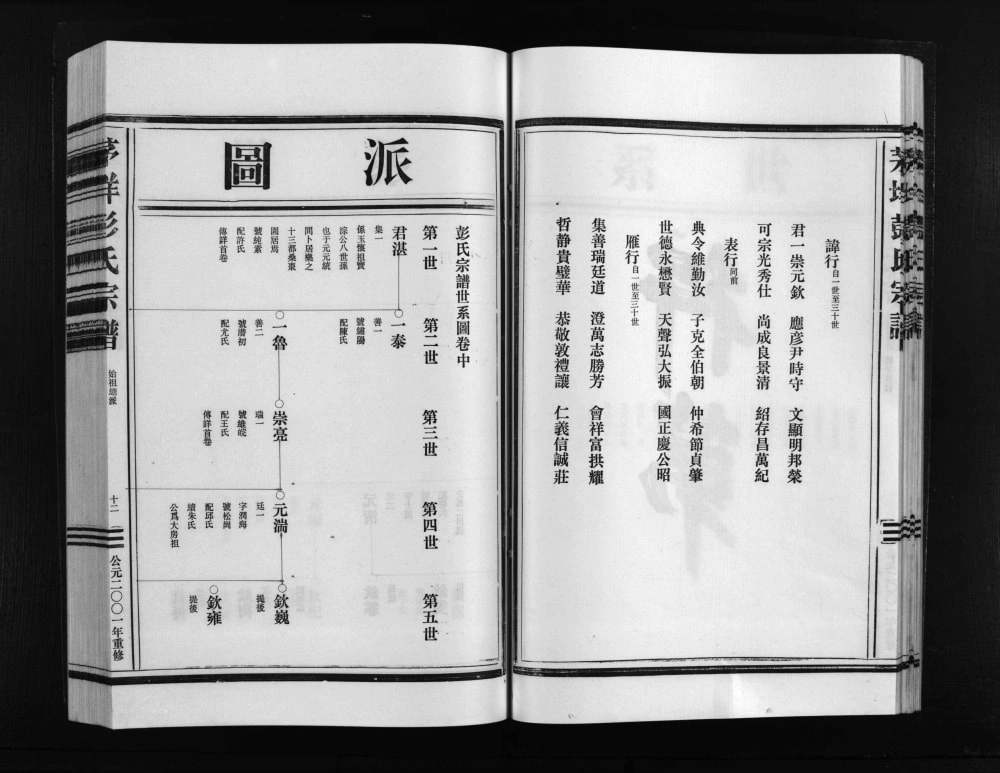 諱行自一世至三十世
君一崇元欽　應彦尹時守　文顯明邦榮
可宗光秀仕　尚成良景清　紹存昌萬紀
表行同前
典令維勤汝　子克全伯朝　仲希節貞肇
世德永懋賢　天聲弘大振　國正慶公昭
雁行自一世至三十世
集善瑞廷道　澄萬志勝芳　會祥富拱耀
哲静貴璧華　恭敬敦禮讓　仁義信誠莊
派圖
彭氏宗譜世系圖卷中
第一世
第二世
第三世
第四世
第五世
君湛
集一
係玉懷祖寶
淙公八世孫
也于元元統
間卜居樂之
十三都桑棗
園居焉
號純素
配許氏
傳詳首卷
一泰
善一
號鏽陽
配陳氏
一魯
善二
號潜初
配尤氏
崇亮
瑞一
號雄皖
配王氏
傳詳首卷
元湍
廷一
字潤海
號松崗
配邱氏
續朱氏
公爲大房祖
欽巍
提後
欽雍
提後
彭氏宗譜
始祖總派
十二
公元二〇〇一年重修